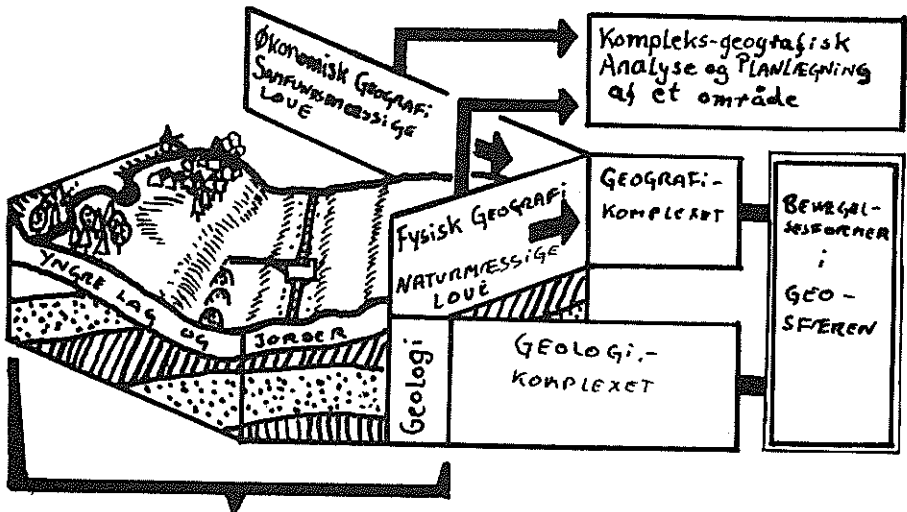 Økonomisk Geografi
Samfundsmæssige
Love
Kompleks-geografisk
Analyse og Planlægning
af et område
Fysisk Geografi
Naturmæssige
Love
Geografi-
komplexet
Bevægel-
sesformer
i
Geo-
sfæren
Yngre lag og jorder
Geologi
Geologi-
komplexet